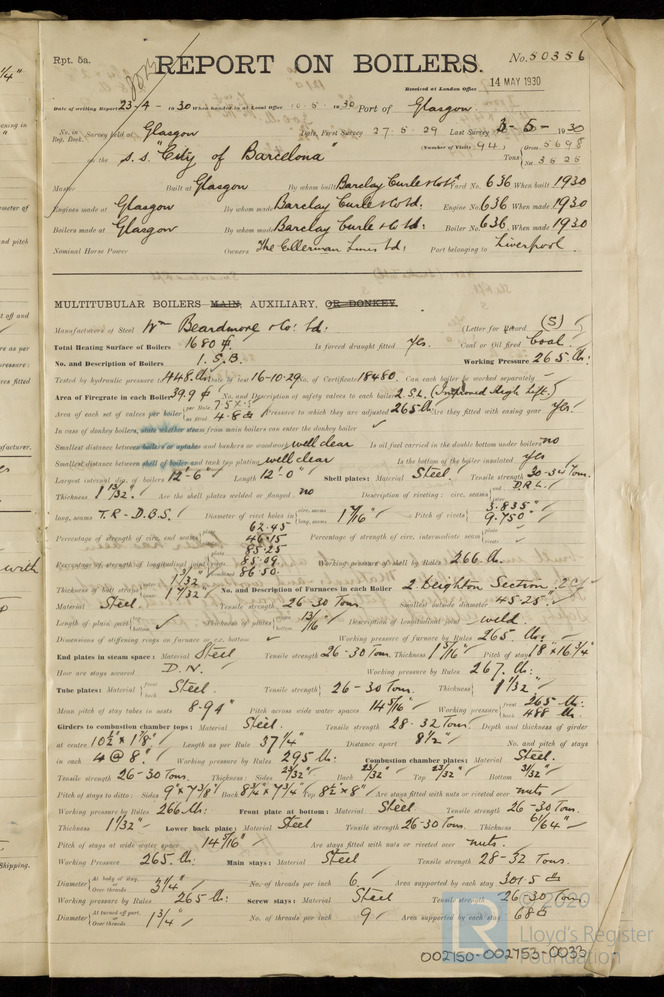 Rpt. 5a.
REPORT ON BOILERS.
No. 50356
Received at London Office 14 MAY 1930
Date of writing Report 23-4-1930 When handed in at Local Office 10.5.1930 Port of Glasgow
No. in Reg. Book. Survey held at Glasgow Date, First Survey 27.5.29 Last Survey 3-5-1930
(Number of Visits 94)
on the S.S. "City of Barcelona" Tons { Gross 5698 Net 3525
Master Built at Glasgow By whom built Barclay Curle & Co Ld. Yard No. 636 When built 1930
Engines made at Glasgow By whom made Barclay Curle & Co Ld. Engine No. 636 When made 1930
Boilers made at Glasgow By whom made Barclay Curle & Co Ld. Boiler No. 636 When made 1930
Nominal Horse Power Owners The Ellerman Lines Ld. Port belonging to Liverpool
MULTITUBULAR BOILERS MAIN, AUXILIARY, OR DONKEY.
Manufacturers of Steel Wm Beardmore & Co. Ld. (Letter for record (S))
Total Heating Surface of Boilers 1680 Is forced draught fitted Yes. Coal or Oil fired Coal.
No. and Description of Boilers 1. S.B. Working Pressure 265 lb.
Tested by hydraulic pressure to 448 lb. Date of test 16-10-29 No. of Certificate 18480. Can each boiler be worked separately
Area of Firegrate in each Boiler 39.9 No. and Description of safety valves to each boiler 2 S.L. (Improved High Lift.)
Area of each set of valves per boiler { per Rule as fitted Pressure to which they are adjusted 265 lb. Are they fitted with easing gear Yes.
In case of donkey boilers, state whether steam from main boilers can enter the donkey boiler
Smallest distance between boilers or uptakes and bunkers or woodwork well clear Is oil fuel carried in the double bottom under boilers no
Smallest distance between shell of boiler and tank top plating well clear Is the bottom of the boiler insulated yes
Largest internal dia. of boilers 12'-6" Length 12'-0" Shell plates: Material Steel Tensile strength 30-34 Tons.
Thickness 1 13/32" Are the shell plates welded or flanged no Description of riveting: circ. seams { D.R.L.
long. seams T.R.-D.B.S. Diameter of rivet holes in { circ. seams long. seams 1 7/16" Pitch of rivets { 3.835" 9.750"
Percentage of strength of circ. end seams { 62.45 46.15 Percentage of strength of circ. intermediate seam
Percentage of strength of longitudinal joint { 85.25 85.09 86.50 Working pressure of shell by Rules 266 lb.
Thickness of butt straps { 1 3/32" 1 7/32" No. and Description of Furnaces in each Boiler 2 Deighton Section
Material Steel. Tensile strength 26-30 Tons. Smallest outside diameter 45.25"
Length of plain part Thickness of plates { 13/16" Description of longitudinal joint weld.
Dimensions of stiffening rings on furnace or c.c. bottom Working pressure of furnace by Rules 265 lb.
End plates in steam space: Material Steel Tensile strength 26-30 Tons. Thickness 1 5/16" Pitch of stays 18" x 16 3/4"
How are stays secured D.N. Working pressure by Rules 267 lb.
Tube plates: Material { front back Steel. Tensile strength { 26-30 Tons. Thickness { 1 1/32"
Mean pitch of stay tubes in nests 8.94" Pitch across wide water spaces 14 5/16" Working pressure { front 265 lb. back 488 lb.
Girders to combustion chamber tops: Material Steel. Tensile strength 28-32 Tons. Depth and thickness of girder
at centre 10 1/2" x 1 7/8" Length as per Rule 37 1/4" Distance apart 8 1/2" No. and pitch of stays
in each 4 @ 8" Working pressure by Rules 295 lb. Combustion chamber plates: Material Steel.
Tensile strength 26-30 Tons. Thickness: Sides 23/32" Back 23/32" Top 23/32" Bottom
Pitch of stays to ditto: Sides 9" x 7 3/8" Back 8 3/4" x 7 3/4" Top 8 1/2" x 8" Are stays fitted with nuts or riveted over nuts
Working pressure by Rules 266 lb. Front plate at bottom: Material Steel Tensile strength 26-30 Tons.
Thickness 1 1/32" Lower back plate: Material Steel Tensile strength 26-30 Tons. Thickness 61/64"
Pitch of stays at wide water space 14 5/16" Are stays fitted with nuts or riveted over nuts.
Working Pressure 265 lb. Main stays: Material Steel Tensile strength 28-32 Tons.
Diameter { At body of stay, or Over threads 3 1/4" No. of threads per inch 6. Area supported by each stay 301.5
Working pressure by Rules 265 lb. Screw stays: Material Steel Tensile strength 26-30 Tons.
Diameter { At turned off part, or Over threads 1 3/4" No. of threads per inch 9 Area supported by each stay 68
© 2020
Lloyd's Register
Foundation
002750-002753-0033